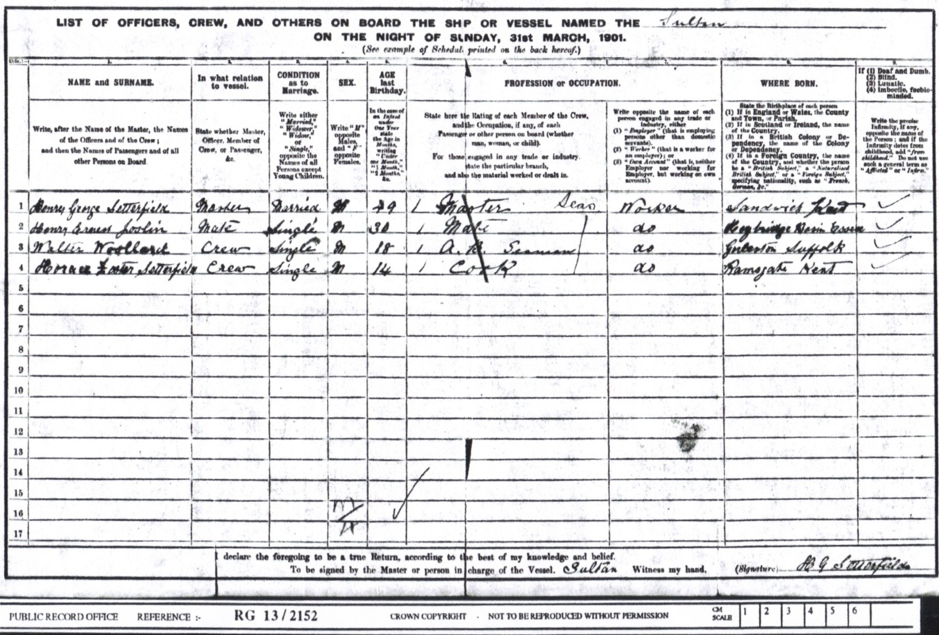 LIST OF OFFICERS, CREW, AND OTHERS ON BOARD THE SHIP OR VESSEL NAMED THE Sultan
ON THE NIGHT OF SUNDAY, 31st MARCH, 1901.
(See example of Schedule printed on the back hereof.)
NAME and SURNAME.
Write, after the Name of the Master, the Names
of the Officers and of the Crew;
and then the Names of Passengers and of all
other Persons on Board
In what relation
to vessel.
State whether Master,
Officer, Member of
Crew, or Passenger,
&c.
CONDITION
as to
Marriage.
Write either
"Married,"
"Widower,"
"Widow,"
or
"Single,"
opposite the
Names of all
Persons except
Young Children.
SEX.
Write "M"
opposite
Males,
and "F"
opposite
Females.
AGE
last
Birthday.
PROFESSION or OCCUPATION.
State here the Rating of each Member of the Crew,
and the Occupation, if any, of each
Passenger or other person on board (whether
man, woman, or child).
For those engaged in any trade or industry,
state the particular branch,
and also the material worked or dealt in.
Write opposite the name of each
person engaged in any trade or
industry, either
(1) "Employer" (that is employing
persons other than domestic
servants).
(2) "Worker" (that is a worker for
an employer); or
(3) "Own Account" (that is, neither
Employer nor working for
Employer, but working on own
account).
WHERE BORN.
State the Birthplace of each person
(1) If in England or Wales, the County
and Town, or Parish.
(2) If in Scotland or Ireland, the name
of the County.
(3) If in a British Colony or De-
pendency, the name of the Colony
or Dependency.
(4) If in a Foreign Country, the name
of the Country, and whether the person
be a "British Subject," a "Naturalised
British Subject," or a "Foreign Subject,"
specifying nationality, such as "French,
German, &c."
If (1) Deaf and Dumb.
(2) Blind.
(3) Lunatic.
(4) Imbecile, feeble-
minded.
Write the precise
Infirmity, if any,
opposite the name of
the Person; and if the
Infirmity dates from
childhood, add "from
childhood." Do not use
such a general term as
"Afflicted" or "Infirm."
1 Henry George Setterfield Master Married M 1 Master Seas Worker Sandwich Kent
2 Henry Ernest Mate Single M 30 1 Mate do Heybridge Basin Essex
3 Walter Woollard Crew Single M 18 1 A.B. Seaman do Suffolk
4 Horace Setterfield Crew Single M 14 1 Cook do Ramsgate Kent
5
6
7
8
9
10
11
12
13
14
15
16
17
I declare the foregoing to be a true Return, according to the best of my knowledge and belief.
To be signed by the Master or person in charge of the Vessel. Sultan Witness my hand, (Signature) H G Setterfield
PUBLIC RECORD OFFICE REFERENCE :- RG 13/2152 CROWN COPYRIGHT - NOT TO BE REPRODUCED WITHOUT PERMISSION CM SCALE 1 2 3 4 5 6